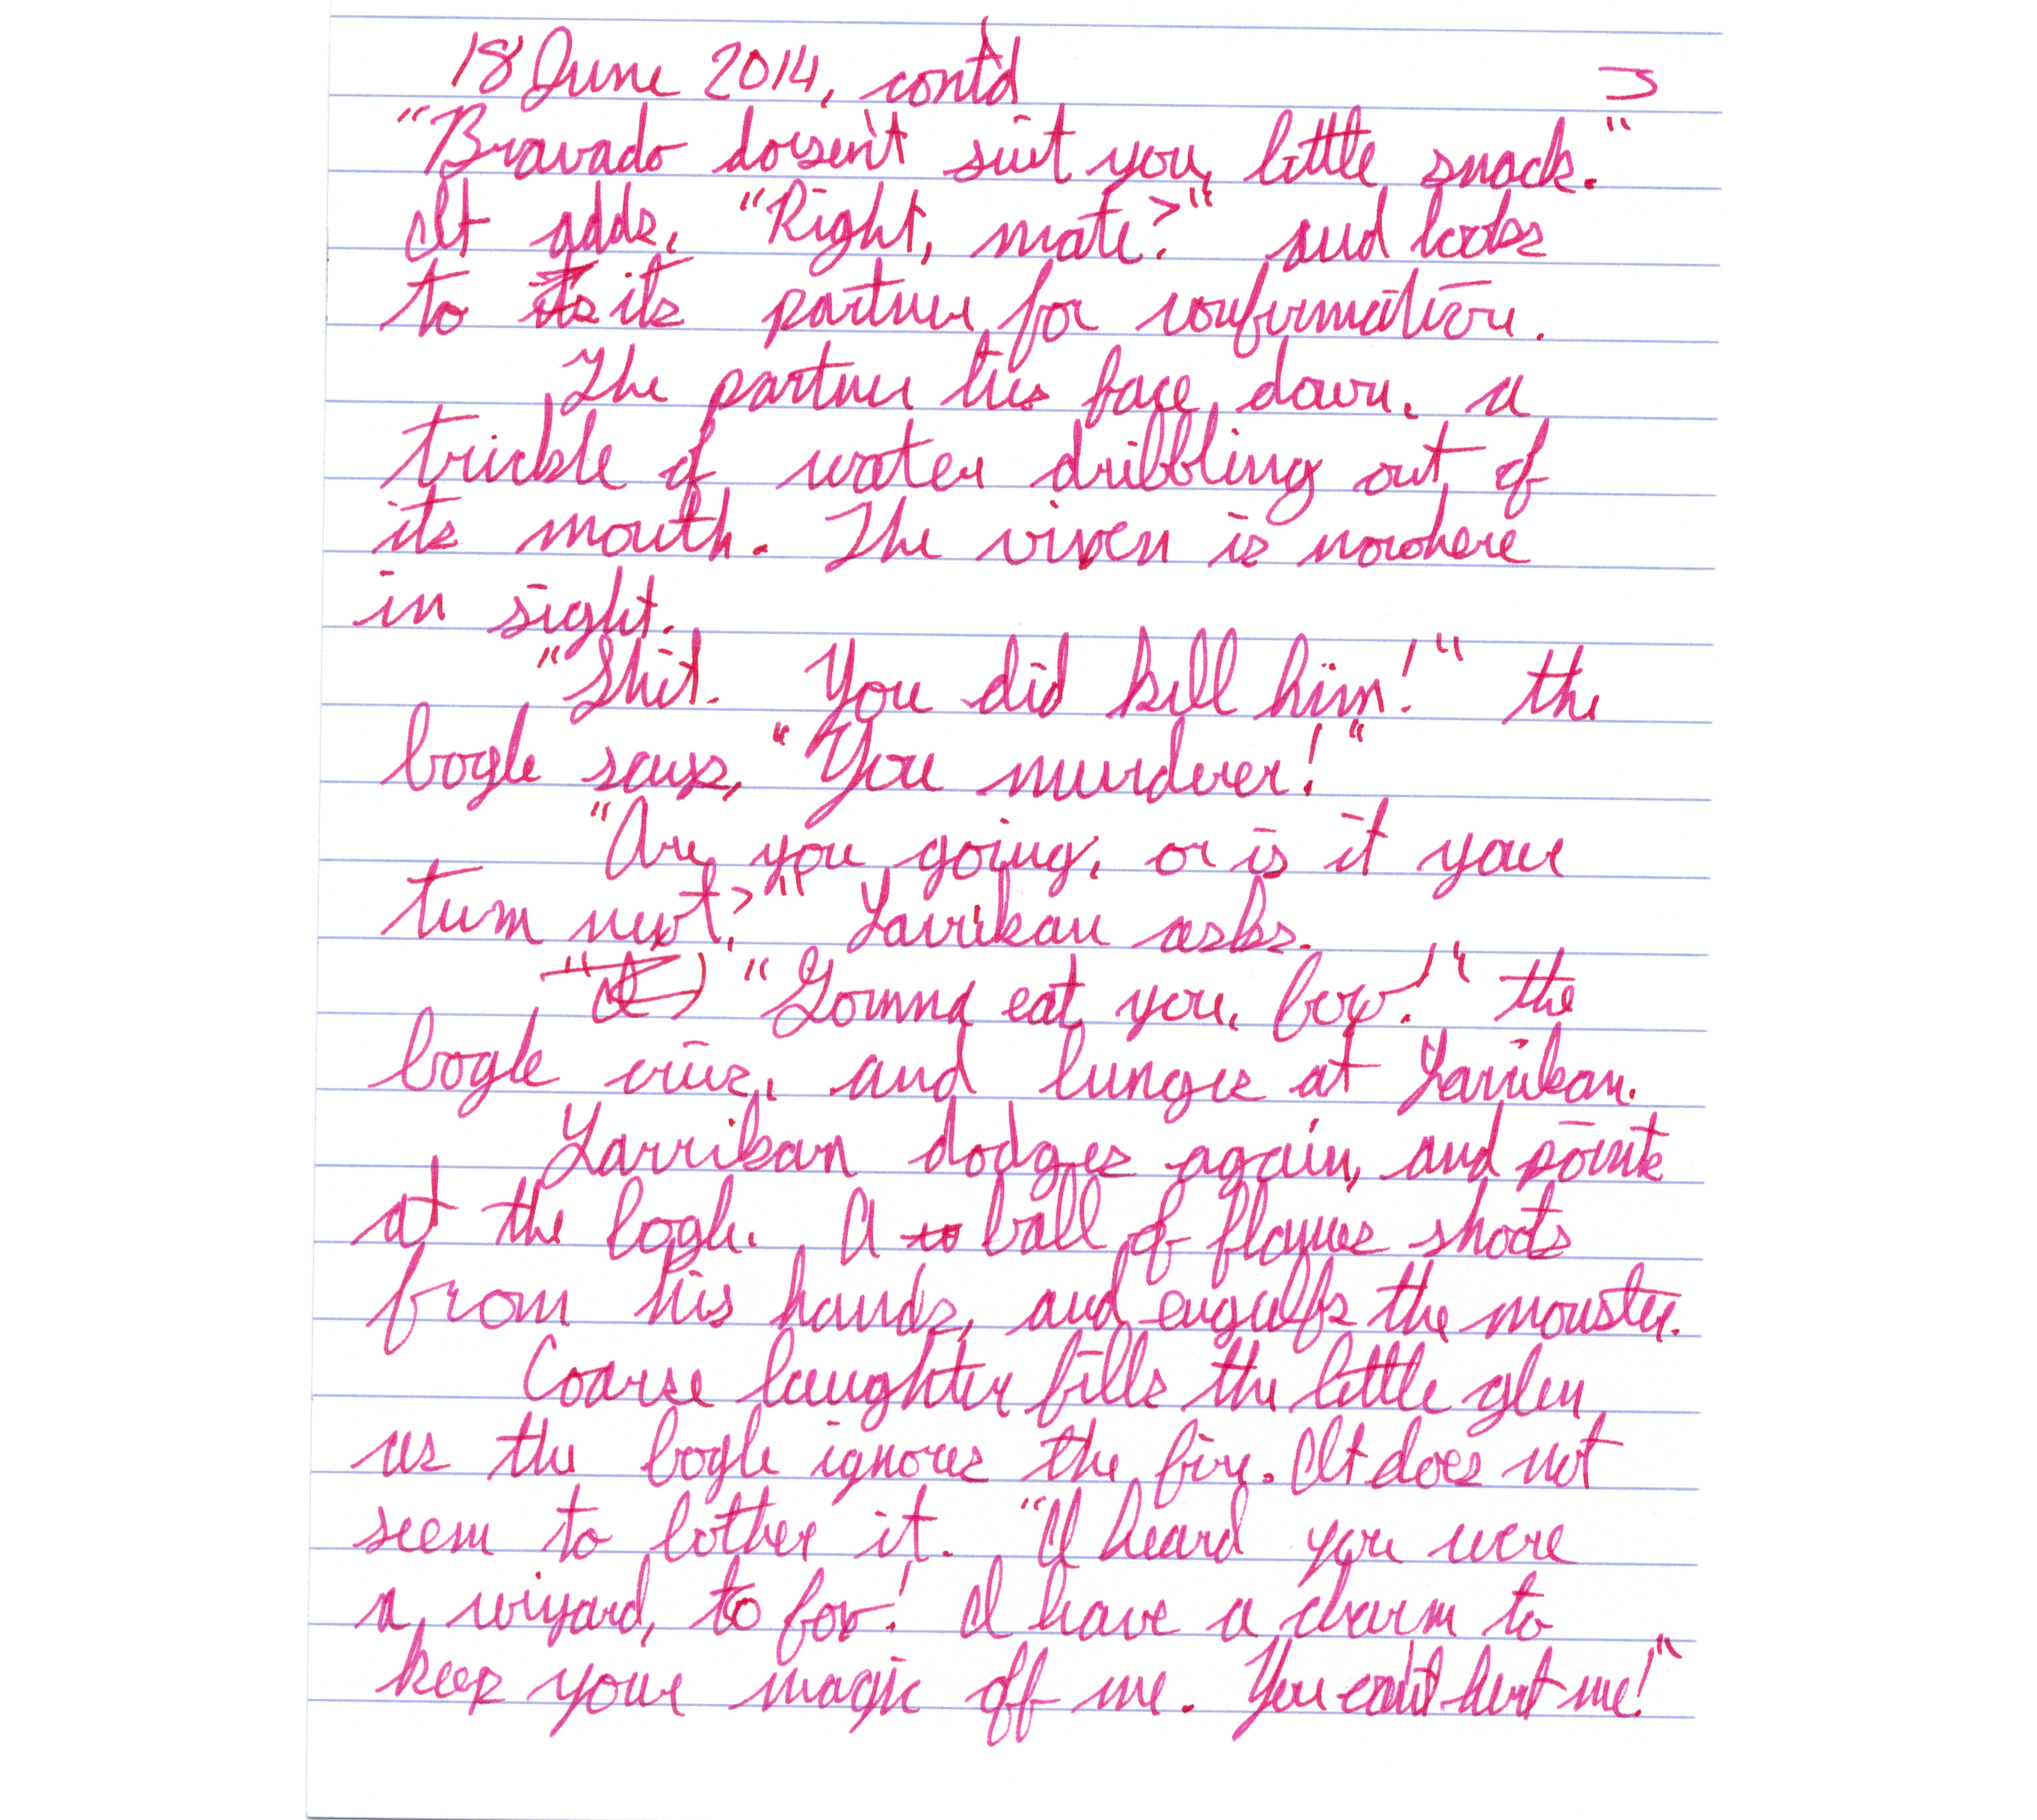 18 June 2014, cont'd 3
"Bravado doesn't suit you, little snack."
It adds, "Right, mate?" and looks
to its its partner for confirmation.
The partner lies face down, a
trickle of water dribbling out of
its mouth. The vixen is nowhere
in sight.
"Shit. You did kill him!" the
bogle says, "You murderer!"
"Are you going, or is it your
turn next?" Larrikan asks.
"Gonna eat you, boy!" the
bogle cries, and lunges at Larrikan.
Larrikan dodges again, and points
at the bogle. A ball of flames shoots
from his hands, and engulfs the monster.
Coarse laughter fills the little glen
as the bogle ignores the fire. It does not
seem to bother it. "I heard you were
a wizard, to fox! I have a charm to
keep your magic off me. You can't hurt me!"